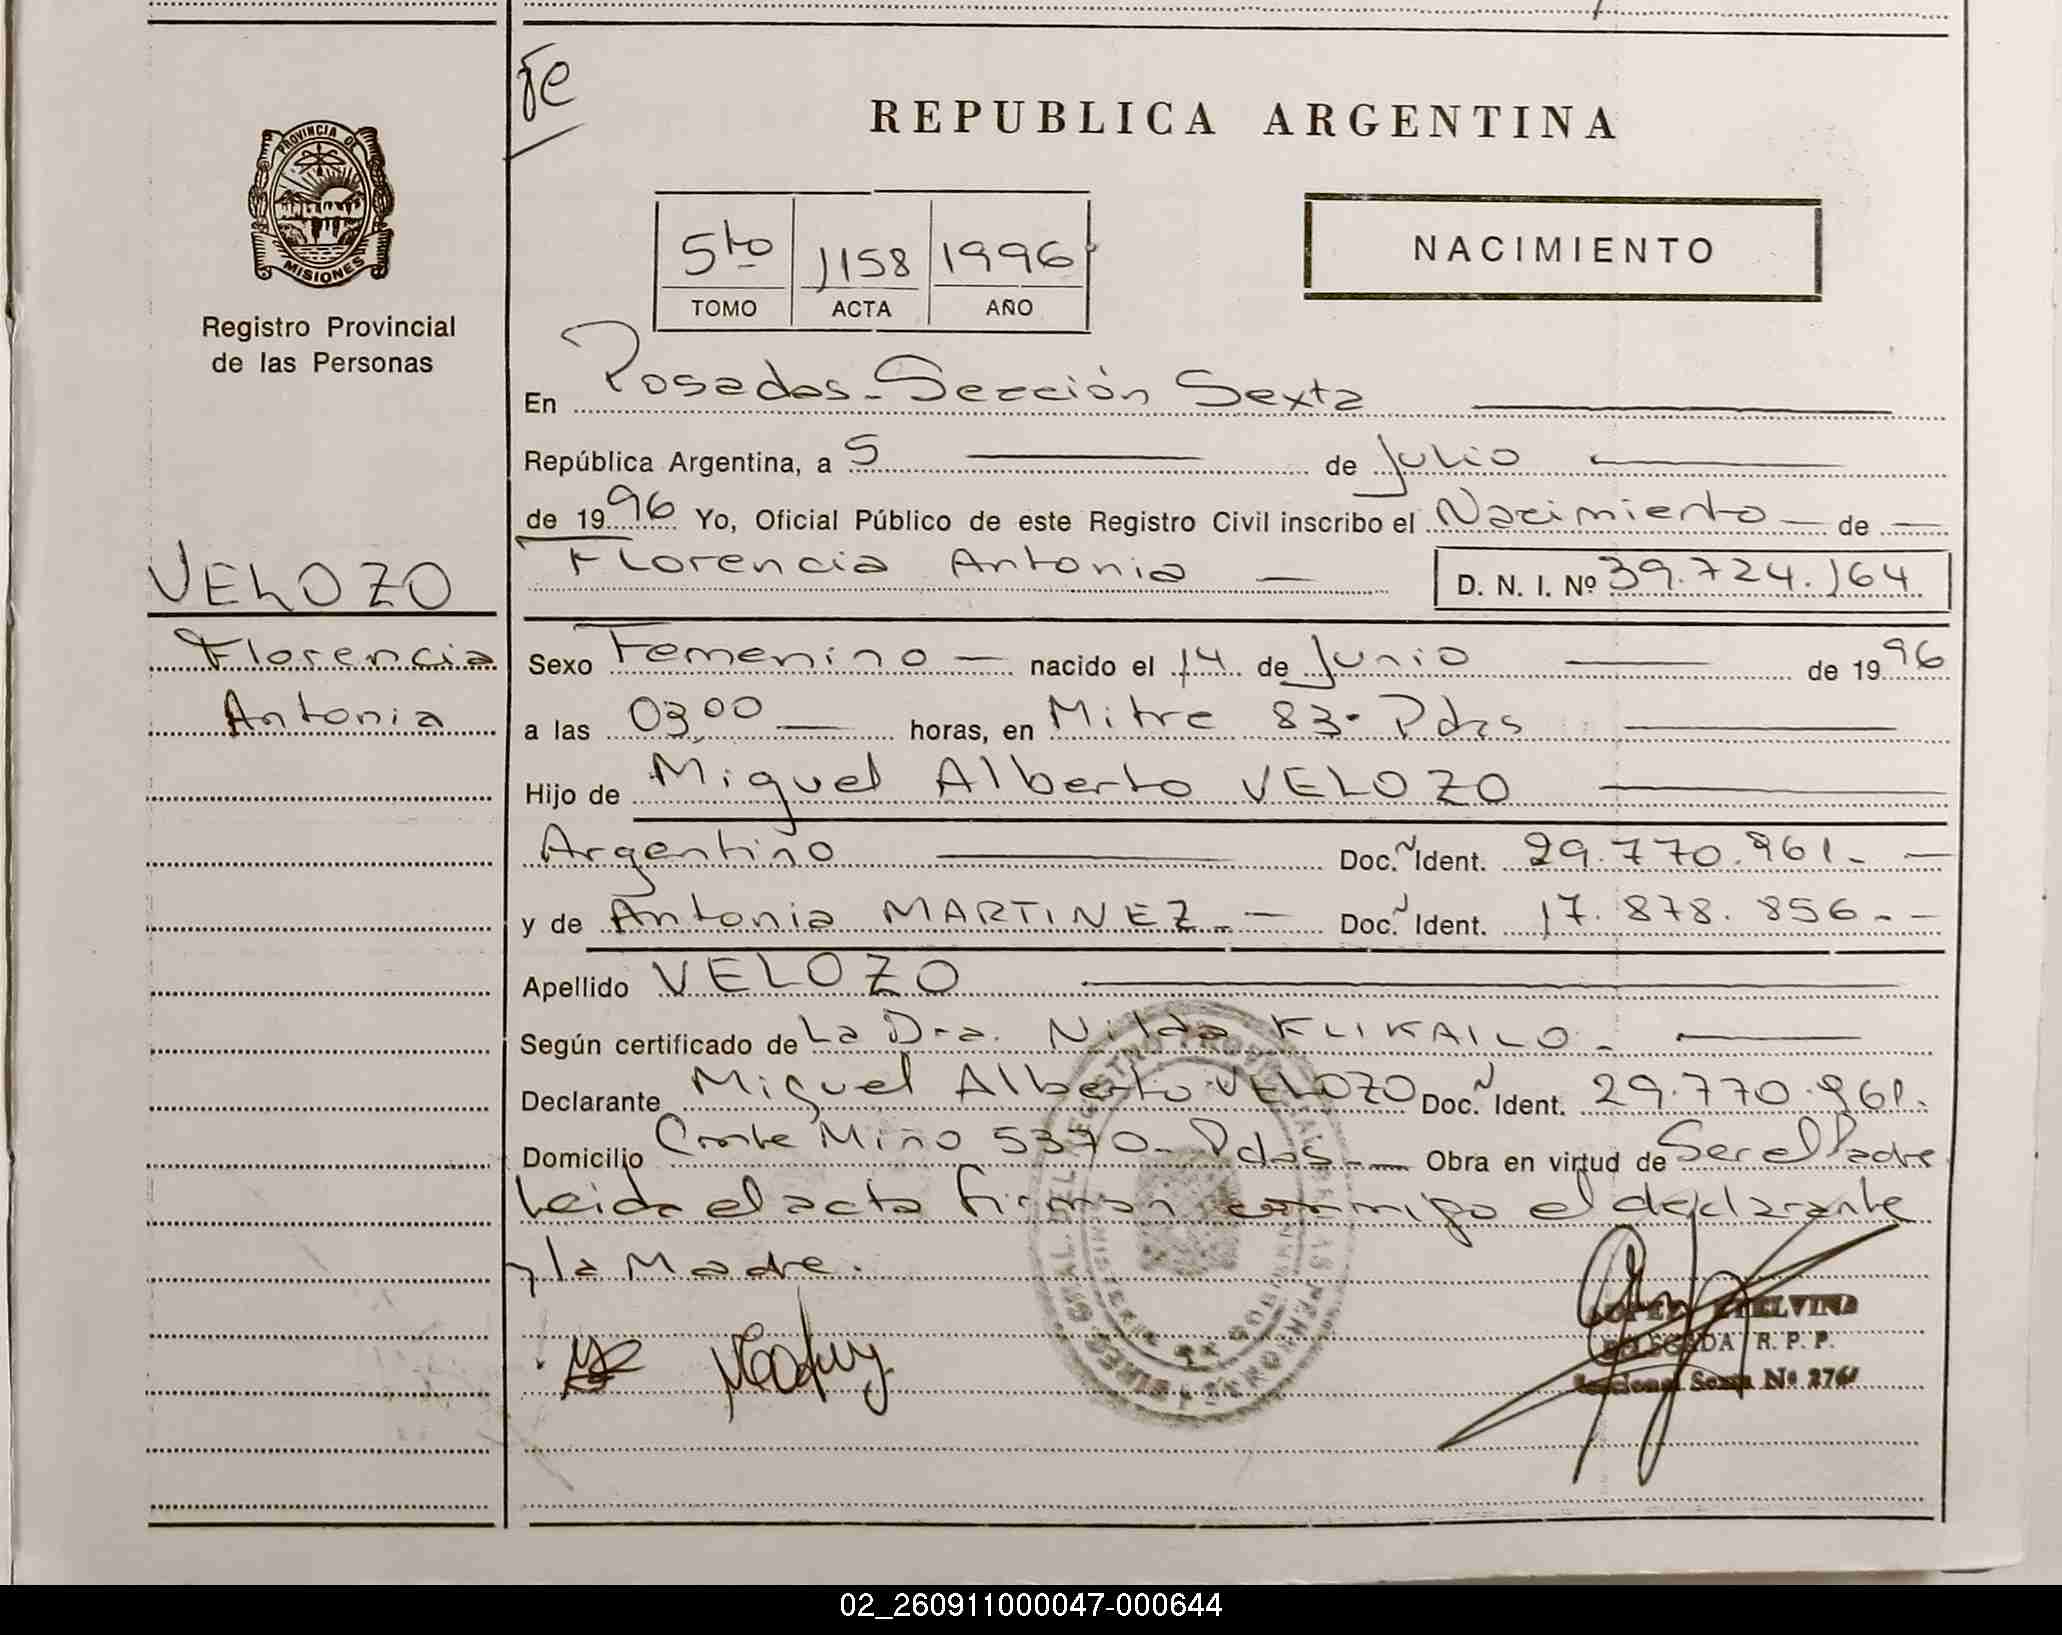 Je
REPUBLICA ARGENTINA
PROVINCIA DE
MISIONES
Registro Provincial
de las Personas
5to 1158 1996
TOMO ACTA AÑO
NACIMIENTO
En Posadas - Sección Sexta
República Argentina, a 5 de Julio
de 1996 Yo, Oficial Público de este Registro Civil inscribo el Nacimiento de
VELOZO
Florencia Antonia D. N. I. Nº 39.724.164
Florencia
Antonia
Sexo Femenino nacido el 14 de Junio de 1996
a las 03,00 horas, en Mitre 83 - Pdas
Hijo de Miguel Alberto VELOZO
Argentino Doc. Ident. 29.770.961.-
y de Antonia MARTINEZ.- Doc. Ident. 17.878.856.-
Apellido VELOZO
Según certificado de La Dra. Nilda KLIKAILO.
Declarante Miguel Alberto VELOZO Doc. Ident. 29.770.961.
Domicilio Miño 5370 - Pdas.- Obra en virtud de Ser el Padre
Leida el acta firman conmigo el declarante
y la Madre.
LOPEZ ETELVINA
DELEGADA R. P. P.
Seccional Sexta Nº 276
02_260911000047-000644